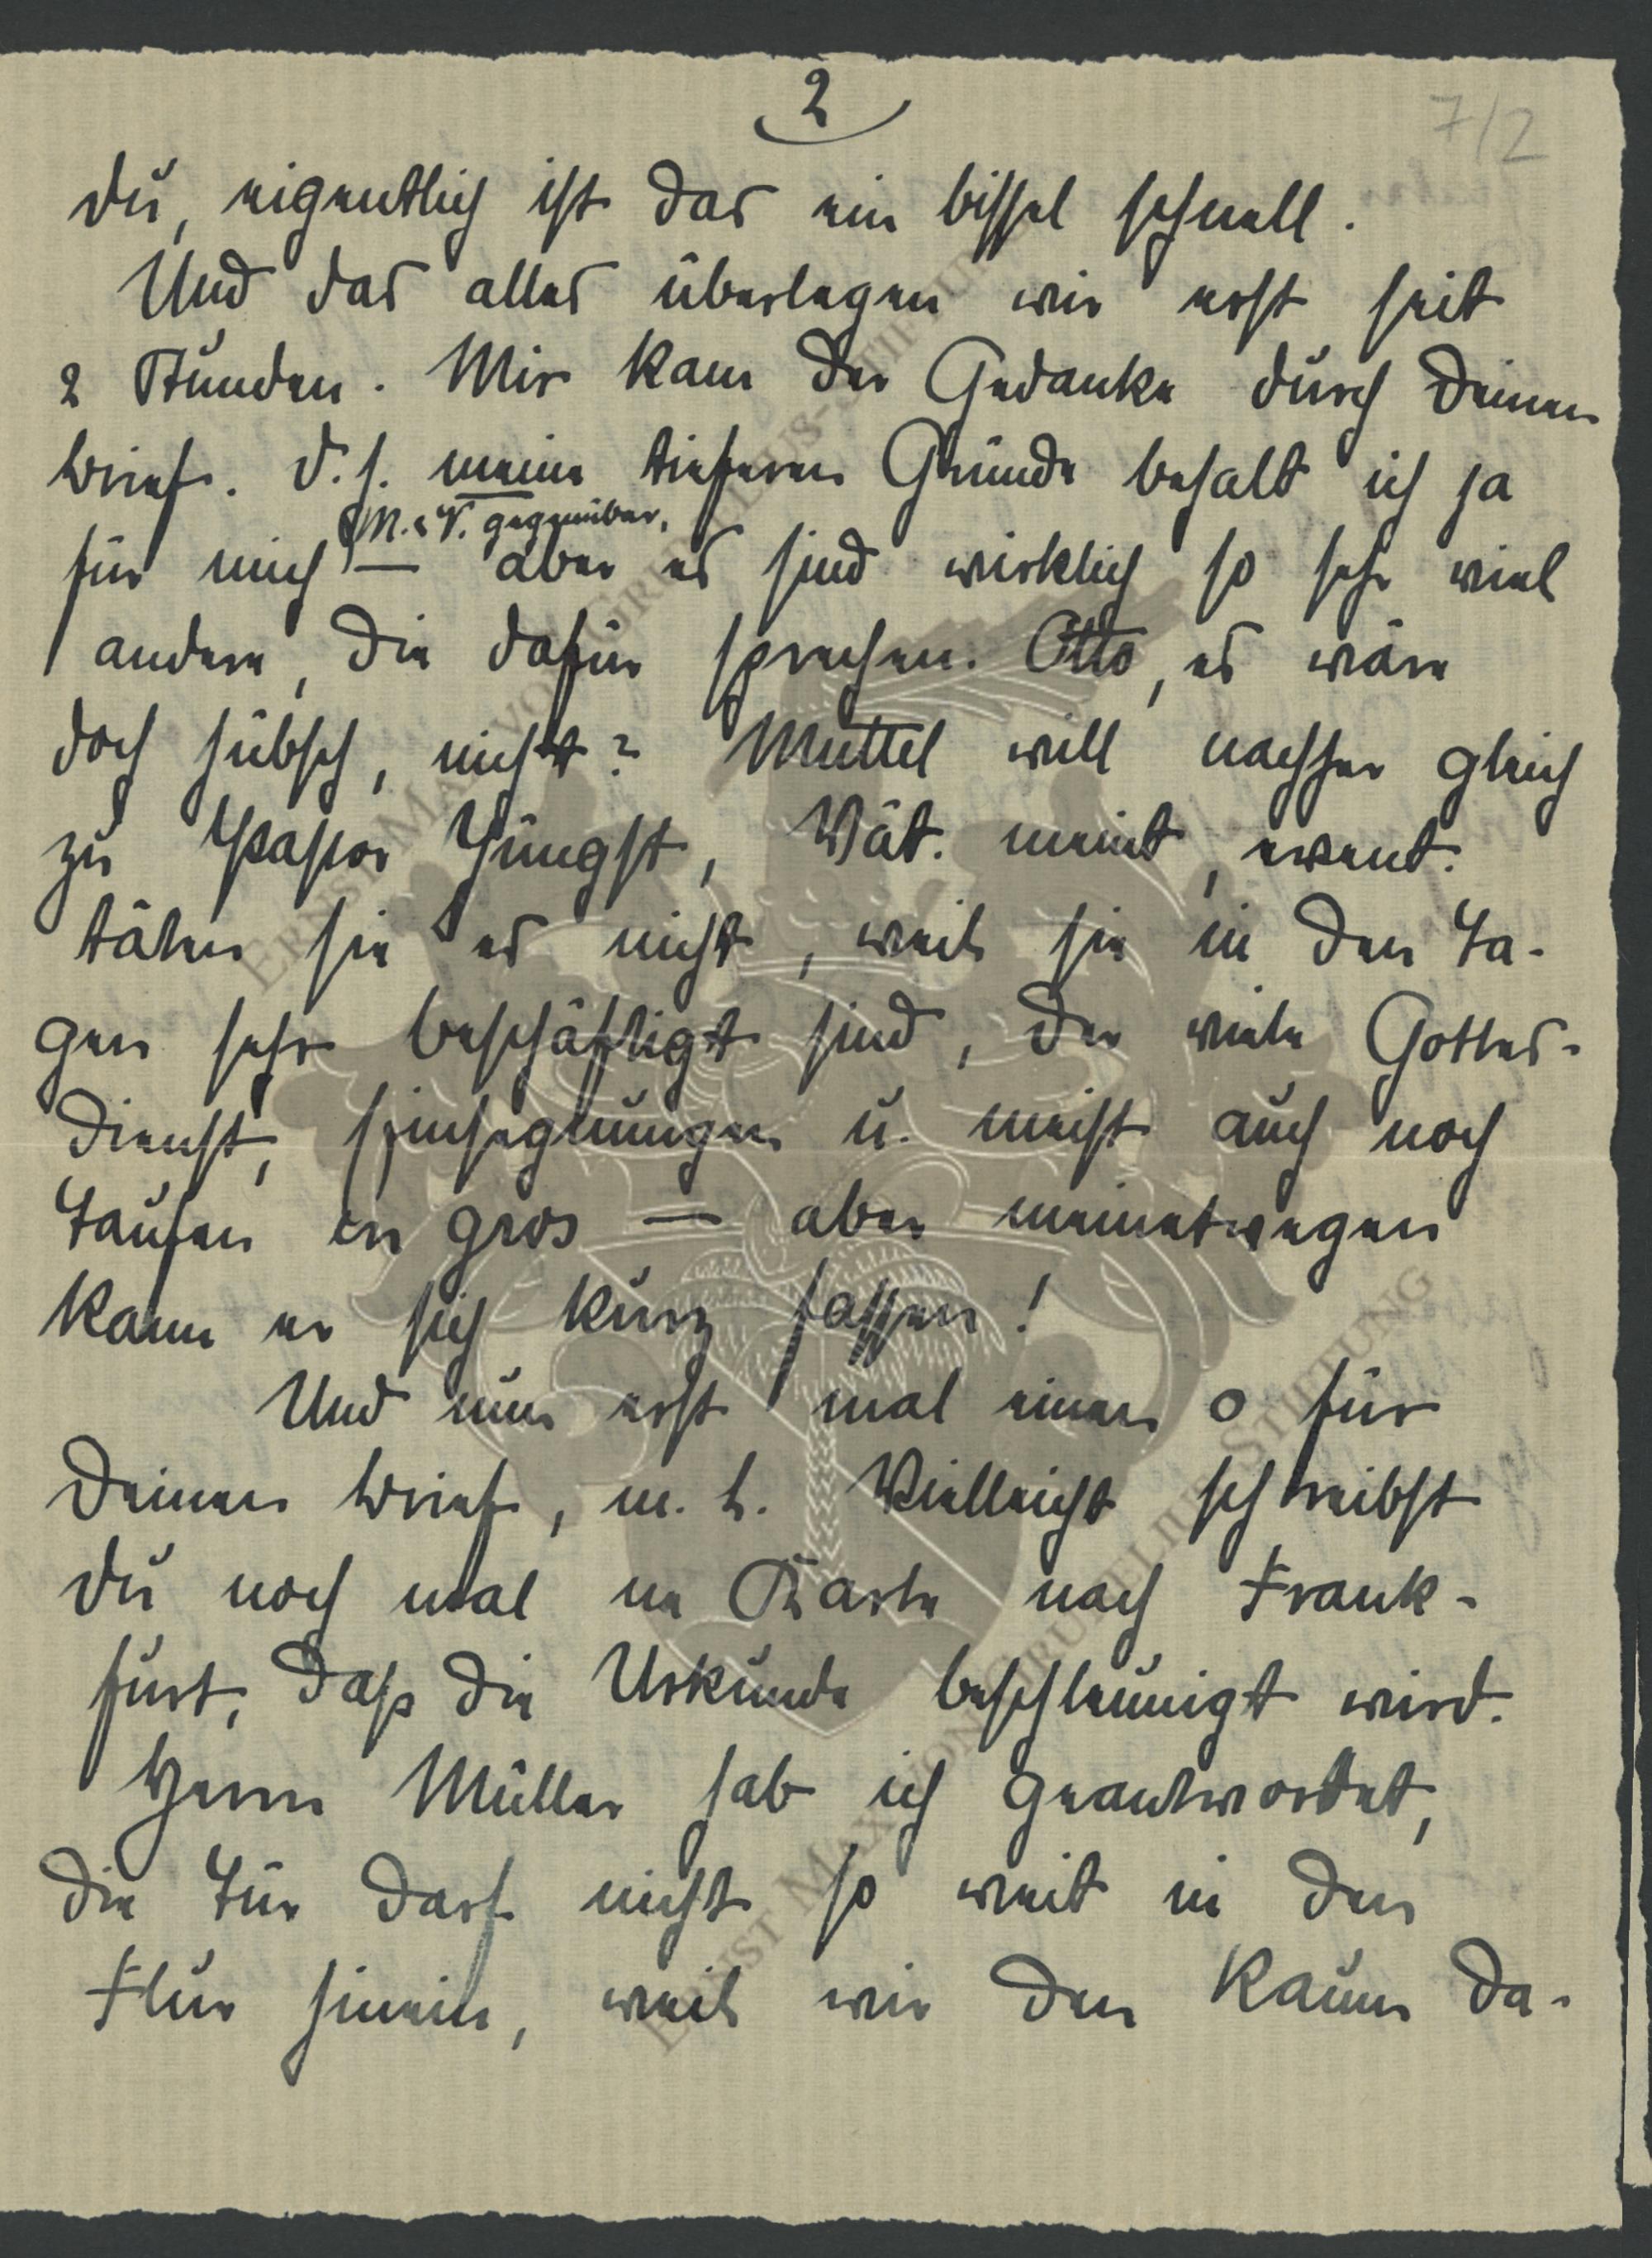 2
7/2
Du, eigentlich ist das ein bissel schnell.
Und das alles überlegen wir erst seit
2 Stunden. Mir kam der Gedanke durch Deinen
Brief. D.h. meine tieferen Gründe behalt ich ja
M. u. V. gegenüber,
für mich — aber es sind wirklich so sehr viel
andere, die dafür sprechen. Otto, es wäre
doch hübsch, nicht? Muttel will nachher gleich
zu Pastor Jüngst, Vät. meint, event.
täten sie es nicht, weil sie in den Ta-
gen sehr beschäftigt sind, der viele Gottes-
dienst, Einsegnungen u. meist auch noch
Taufen en gros — aber meinetwegen
kann er sich kurz fassen!
Und nun erst mal einen o für
Deinen Brief, m. L. Vielleicht schreibst
Du noch mal ne Karte nach Frank-
furt, daß die Urkunde beschleunigt wird.
Herrn Müller hab ich geantwortet,
die Tür darf nicht so weit in den
Flur hinein, weil wir den Raum da-
ERNST MAX VON GRUNELIUS-STIFTUNG
ERNST MAX VON GRUNELIUS-STIFTUNG